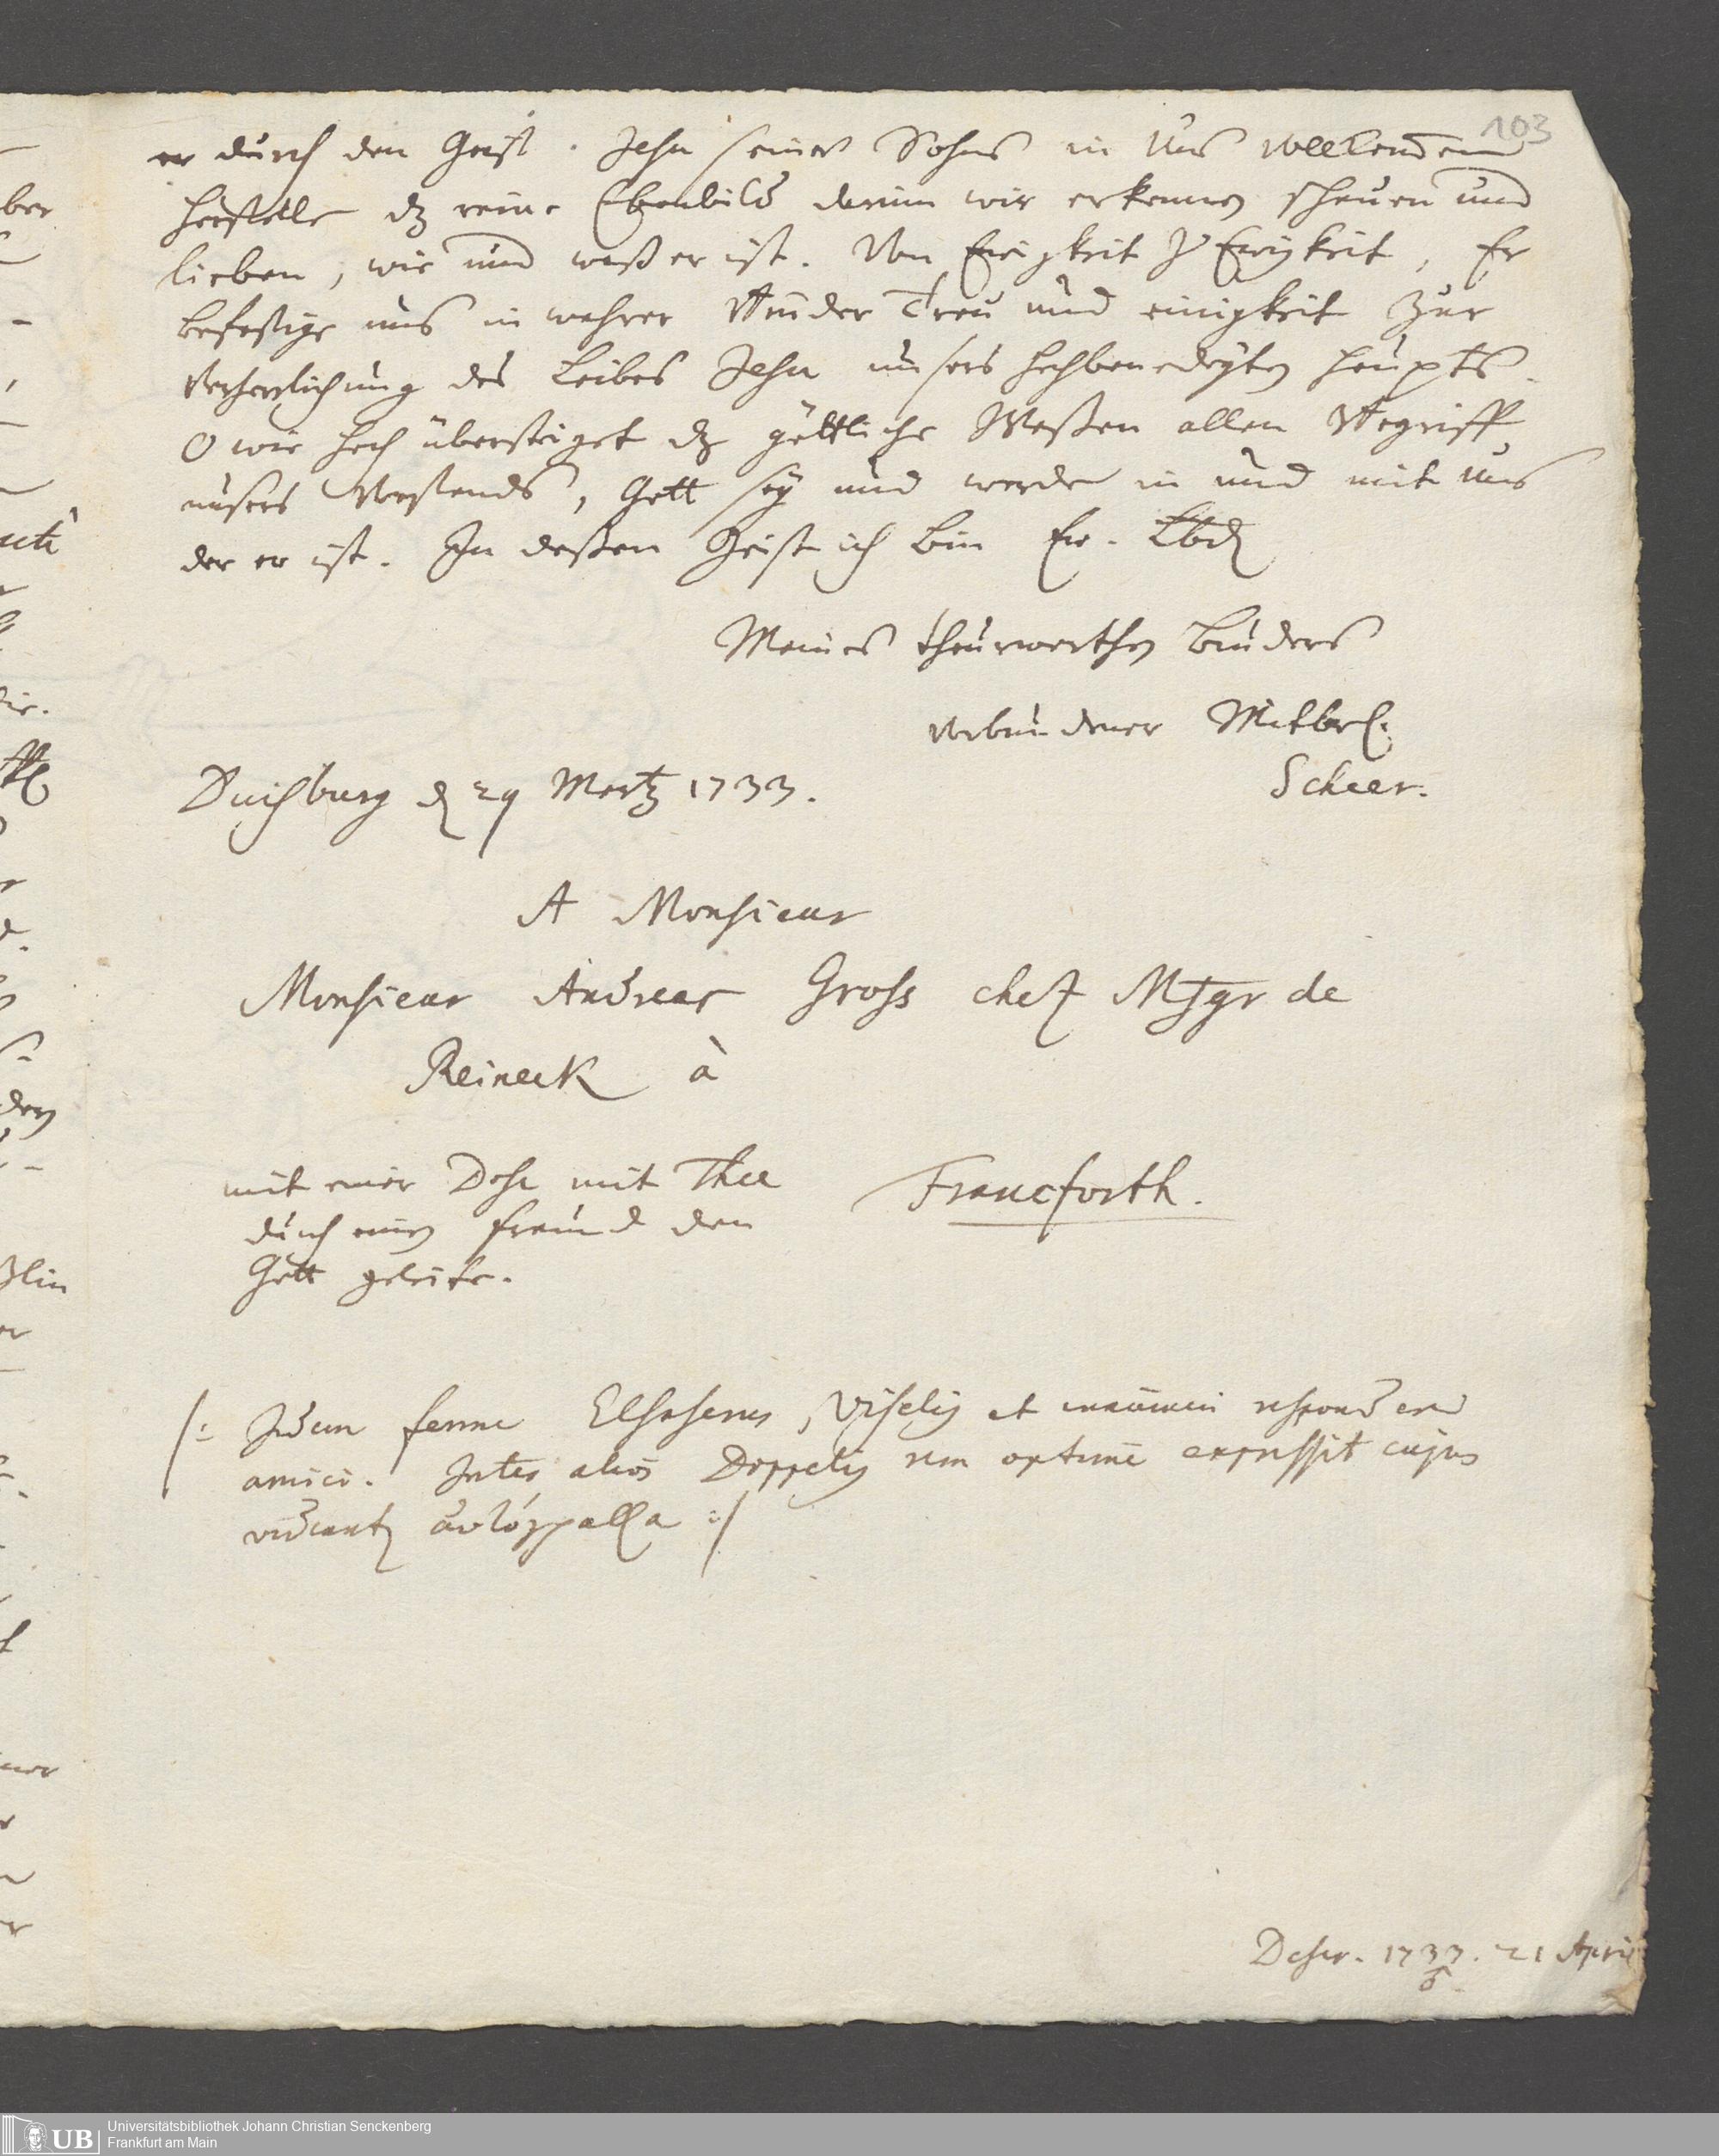 103
er durch den Geist Jesu seines Sohns in Uns vollkommen
herstelle dz reine Ebenbild darinn wir erkennen schauen und
lieben, wie und waß er ist. Von Ewigkeit zu Ewigkeit, Er
befestige uns in wahrer Bruder Treu und einigkeit zur
Verherrlichung des Leibes Jesu unsers hochbenedeyten haupts.
O wie hoch übersteiget dz göttliche Weßen allen Begriff
unsers Verstands, Gott sey und werde in und mit uns
der er ist. In deßen Geist ich bin Ew. Lbd
Meines theurwerthen bruders
verbundener Mitbr.
Scheer.
Duisburg d 29 Mertz 1733.
A Monsieur
Monsieur Andreas Gross chez de
Reineck à
Francforth.
mit einer Dose mit Thee
durch einen freund den
Gott geleite.
/: Idem ferme Elsasenus, et responderunt
amici. Inter alios Doppelig rem optime expressit cujus
videantur :/
Descr. 1733. 21 April
8
ber
den
Universitätsbibliothek Johann Christian Senckenberg
Frankfurt am Main
UB